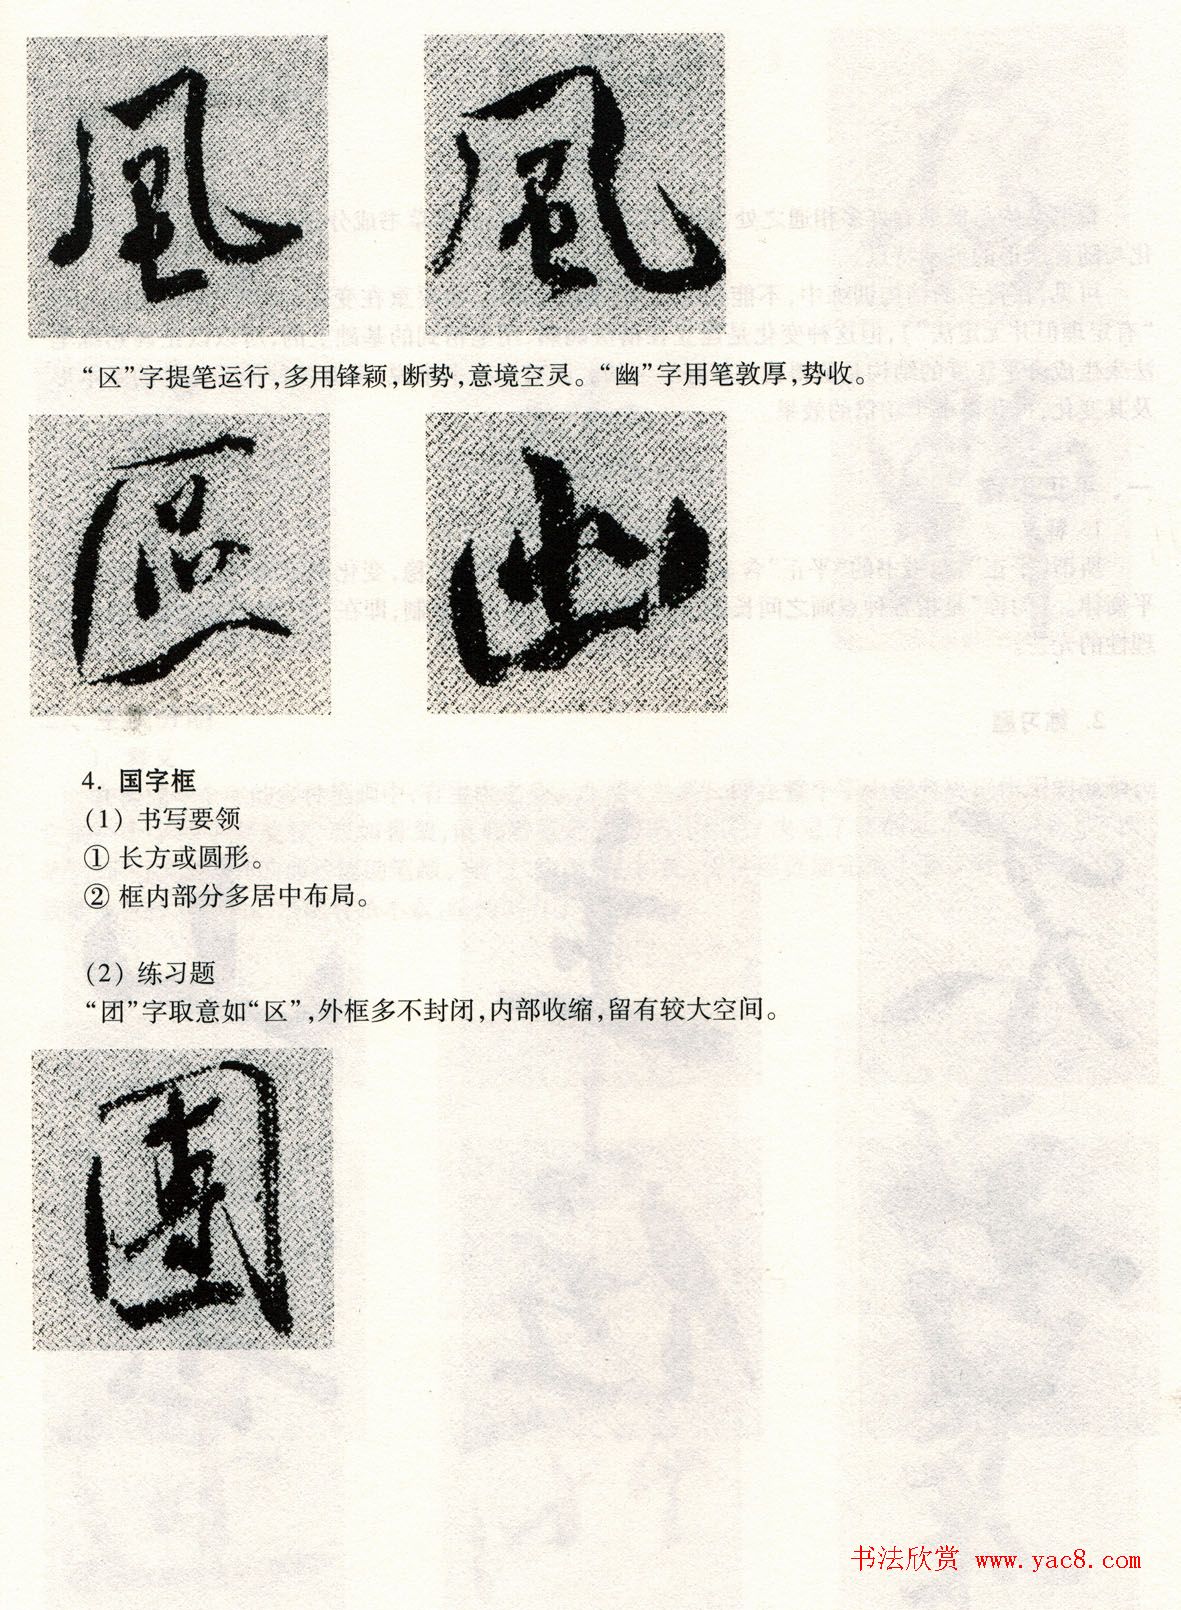 風 風
“区”字提笔运行,多用锋颖,断势,意境空灵。“幽”字用笔敦厚,势收。
區 幽
4. 国字框
(1) 书写要领
① 长方或圆形。
② 框内部分多居中布局。
(2) 练习题
“团”字取意如“区”,外框多不封闭,内部收缩,留有较大空间。
團
书法欣赏 www.yac8.com